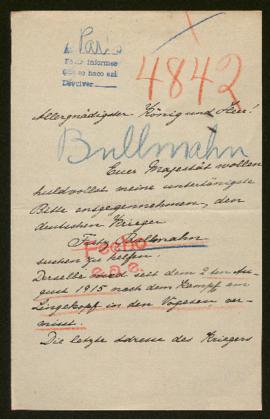 A Paris
Para informes
Que se hace así
Devolver
4842
Allergnädigster König und Herr!
Bullmahn
Euer Majestät wollen
huldvollst meine untertänigste
Bitte entgegennehmen, den
deutschen Krieger
Fritz Bullmahn
suchen zu helfen.
Fecho
Derselbe wird seit dem 2ten Au-
gust 1915 nach dem Kampf am
Lingekopf in den Vogesen ver-
misst.
Die letzte Adresse des Kriegers